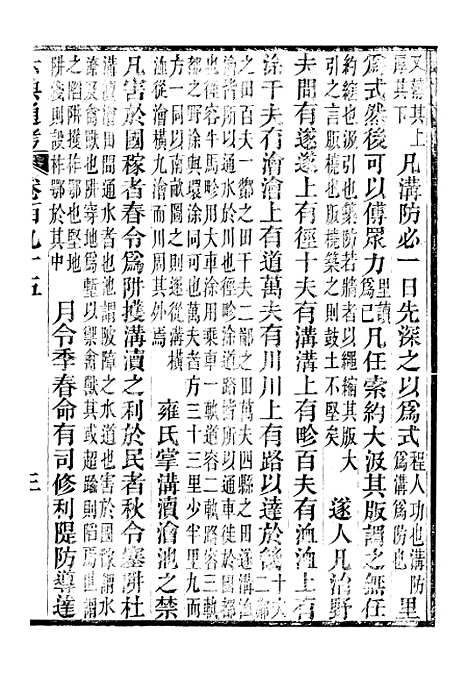 又薄其上
厚其下
凡溝防必一日先深之以爲式
程人功也溝防
爲溝爲防也
里
爲式然後可以傅眾力
里讀
爲已
凡任索約大汲其版謂之無任
約縮也汲引也築防若牆者以繩縮其版大
引之言版橈築之則鼓土不堅矣
遂人凡治野
夫間有遂遂上有徑十夫有溝溝上有畛百夫有洫洫上有
涂千夫有澮澮上有道萬夫有川川上有路以達於畿
十夫
二鄰
之田百夫一酇之田千夫二鄙之田萬夫四縣之田遂溝洫
澮皆所以通水於川也徑畛涂道路皆所以通車徒於國都
也徑容牛馬畛容大車涂容乘車一軌道容二軌路容三軌
都之野涂與環涂同可也萬夫者方三十三里少半里九而
方一同以南畝圖之則遂從溝橫
洫從澮橫九澮而川周其外焉
雍氏掌溝瀆澮池之禁
凡害於國稼者春令爲阱擭溝瀆之利於民者秋令塞阱杜
溝瀆澮田間通水者也池謂陂障之水道也害於國稼謂水
潦及禽獸也阱穿地爲塹以禦禽獸其或超踰則陷焉世謂
之陷阱擭柞鄂也堅地
阱淺則設柞鄂於其中
月令季春命有司修利隄防導達
六典通考
卷百九十五
三